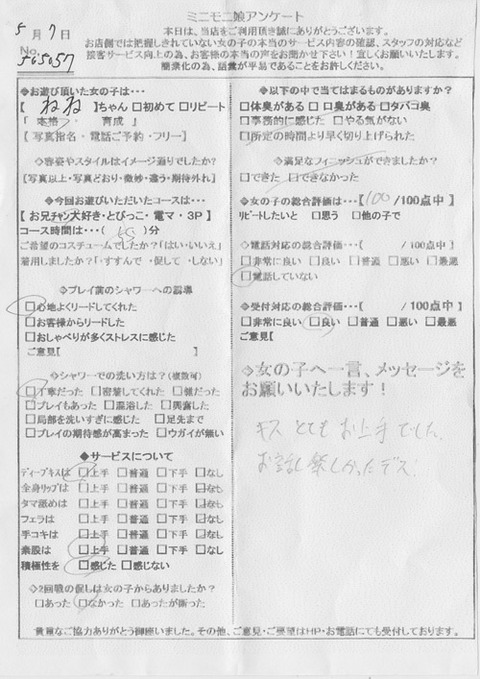 ミニモニ娘アンケート
5月7日
本日は、当店をご利用頂き誠にありがとうございます。
お店側では把握しきれていない女の子の本当のサービス内容の確認、スタッフの対応など
No.
接客サービス向上の為、お客様の本当の声をお聞かせ下さい！宜しくお願いいたします。
簡素化の為、語彙が平易であることをお許しください。
◆お遊び頂いた女の子は・・・
【ねね】ちゃん □初めて □リピート
育成 」
【 写真指名・電話ご予約・フリー】
◇容姿やスタイルはイメージ通りでしたか？
【写真以上・写真どおり・微妙・違う・期待外れ】
◆今回お遊びいただいたコースは・・・
【お兄チャン大好き・とびっこ・電マ・３Ｐ】
コース時間は・・・( )分
ご希望のコスチュームでしたか？「はい・いいえ」
着用しましたか？「すすんで ・促して ・しない」
◇プレイ前のシャワーへの誘導
□心地よくリードしてくれた
□お客様からリードした
□おしゃべりが多くストレスに感じた
ご意見【 】
◇シャワーでの洗い方は？(複数可)
□丁寧だった □密着してくれた □雑だった
□プレイもあった □混浴した □興奮した
□局部を洗いすぎに感じた □足先まで
□プレイの期待感が高まった □ウガイが無い
◆サービスについて
ディープキスは □上手 □普通 □下手 □なし
全身リップは □上手 □普通 □下手 □なし
タマ舐めは □上手 □普通 □下手 □なし
フェラは □上手 □普通 □下手 □なし
手コキは □上手 □普通 □下手 □なし
素股は □上手 □普通 □下手 □なし
積極性を □感じた □感じない
◇2回戦の促しは女の子からありましたか？
□あった □なかった □あったが断った
◆以下の中で当てはまるものがありますか？
□体臭がある □口臭がある □タバコ臭
□事務的に感じた □やる気がない
□所定の時間より早く切り上げられた
◇満足なフィニッシュができましたか？
□できた □できなかった
◆女の子の総合評価は・・・【100 /100点中 】
リピートしたいと □思う □他の子で
◇電話対応の総合評価・・・【 /100点中 】
□非常に良い □良い □普通 □悪い □最悪
□電話していない
◆受付対応の総合評価・・・【 /100点中 】
□非常に良い □良い □普通 □悪い □最悪
ご意見【 】
◇女の子へ一言、メッセージを
お願いいたします！
キス とてもお上手でした。
お話し楽しかったデス。
貴重なご協力ありがとう御座いました。その他、ご意見・ご要望はHP・お電話にても受付しております。